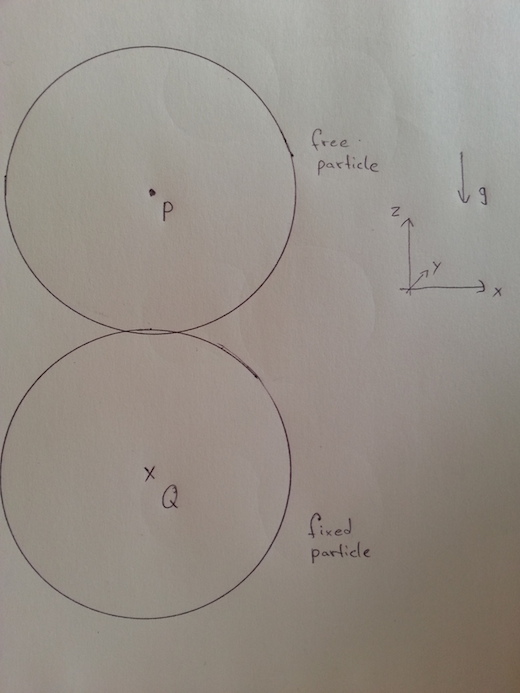 free
particle
P
g
z
Y
x
Q
fixed
particle